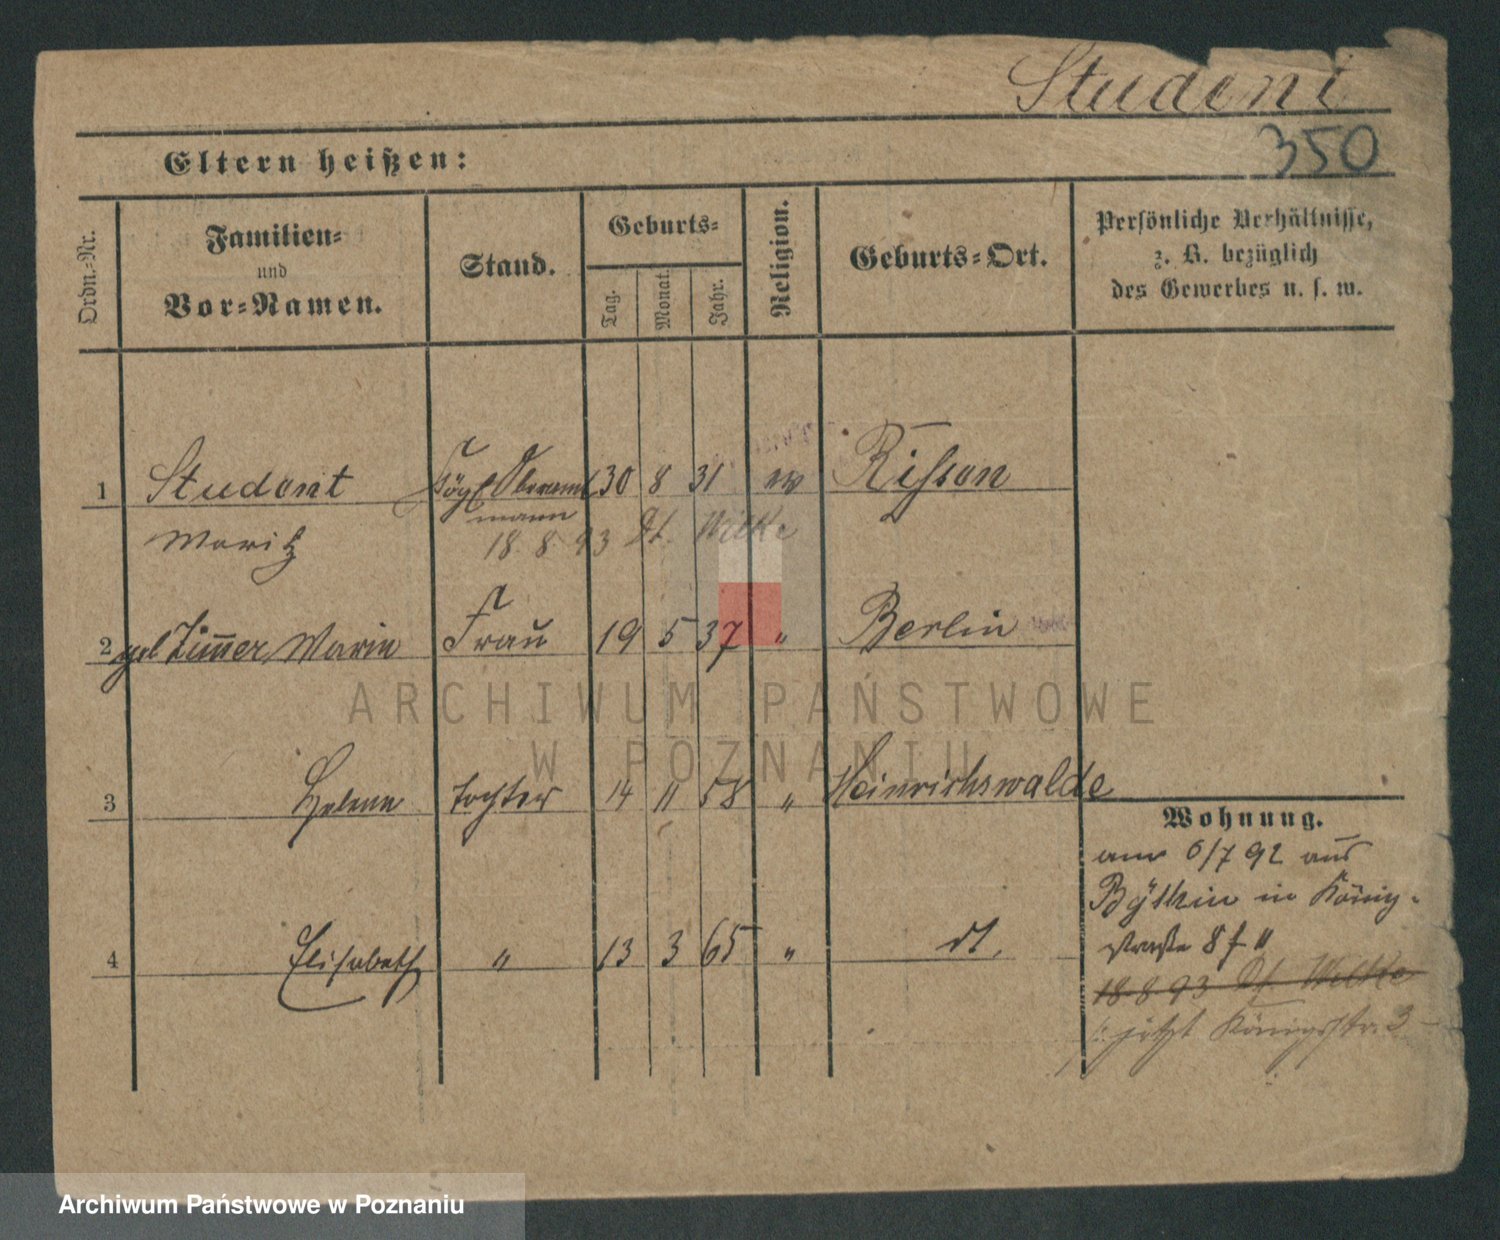 Student
350
Eltern heißen:
Ordn.-Nr.
Familien-
und
Vor-Namen.
Stand.
Geburts-
Tag.
Monat.
Jahr.
Religion.
Geburts-Ort.
Persönliche Verhältnisse,
z. B. bezüglich
des Gewerbes u. s. w.
1 Student 30 8 31 ev
mann
Moritz
18. 8. 93 Wilke
2 Zimmer, Marie Frau 19 5 37 " Berlin
ARCHIWUM PAŃSTWOWE
W POZNANIU
3 Helene Tochter 14 11 58 " Heinrichswalde
Wohnung.
am 6/7 92 aus
Bythin in König-
straße 8
4 Elisabeth " 13 3 65 " dt.
18 8 93 Wilke
jetzt Königsstr. 3
Archiwum Państwowe w Poznaniu